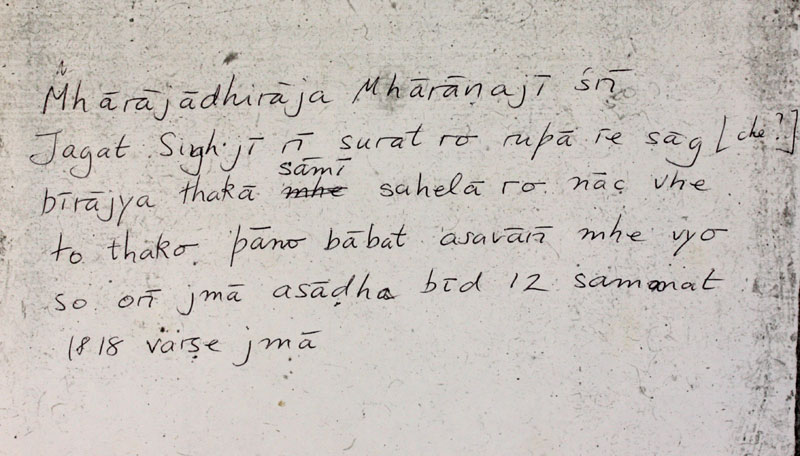 Mhārājādhirāja Mhārāṇajī śrī
Jagat Singh·jī rī surat ro rupā re sāg [che?]
bīrājya thakā sāmī sahelā ro nāc vhe
to thako pāno bābat asavārī mhe vyo
so orī jmā asāḍha bīd 12 sammat
1818 varṣe jmā